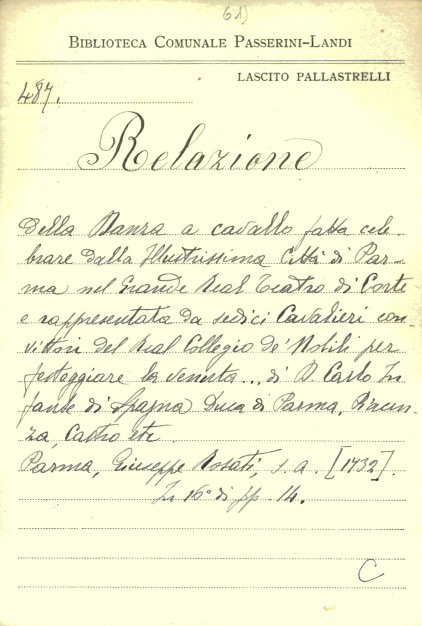 61)
BIBLIOTECA COMUNALE PASSERINI-LANDI
LASCITO PALLASTRELLI
487.
Relazione
della Danza a cavallo fatta cele-
brare dalla Illustrissima Città di Par-
ma nel Grande Real Teatro di Corte
e rappresentata da sedici Cavalieri con-
vittori del Real Collegio de' Nobili per
festeggiare la venuta... di D. Carlo In
fante di Spagna Duca di Parma, Piacen-
za, Castro etc.
Parma, Giuseppe Rosati, s. a. [1732].
In 16° di pp. 14.
C